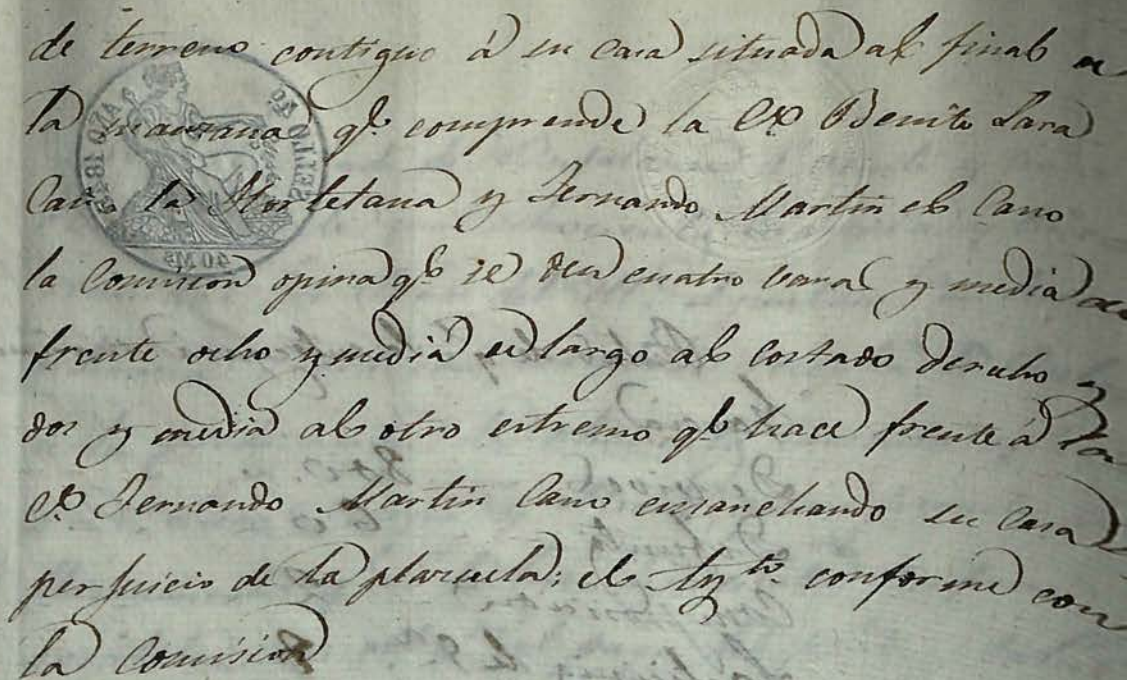 de terreno contiguo á su casa situada al final de
la manzana qe comprende la de Benito Lara
Cano la Hortelana y Fernando Martin el Cano
la Comision opina qe se den cuatro varas y media de
frente ocho y media de largo al costado derecho y
dos y media al otro extremo qe hace frente á la
de Fernando Martin Cano ensanchando su casa
perjuicio de la plazuela; el Aytto conforme con
la Comision
40 Ms